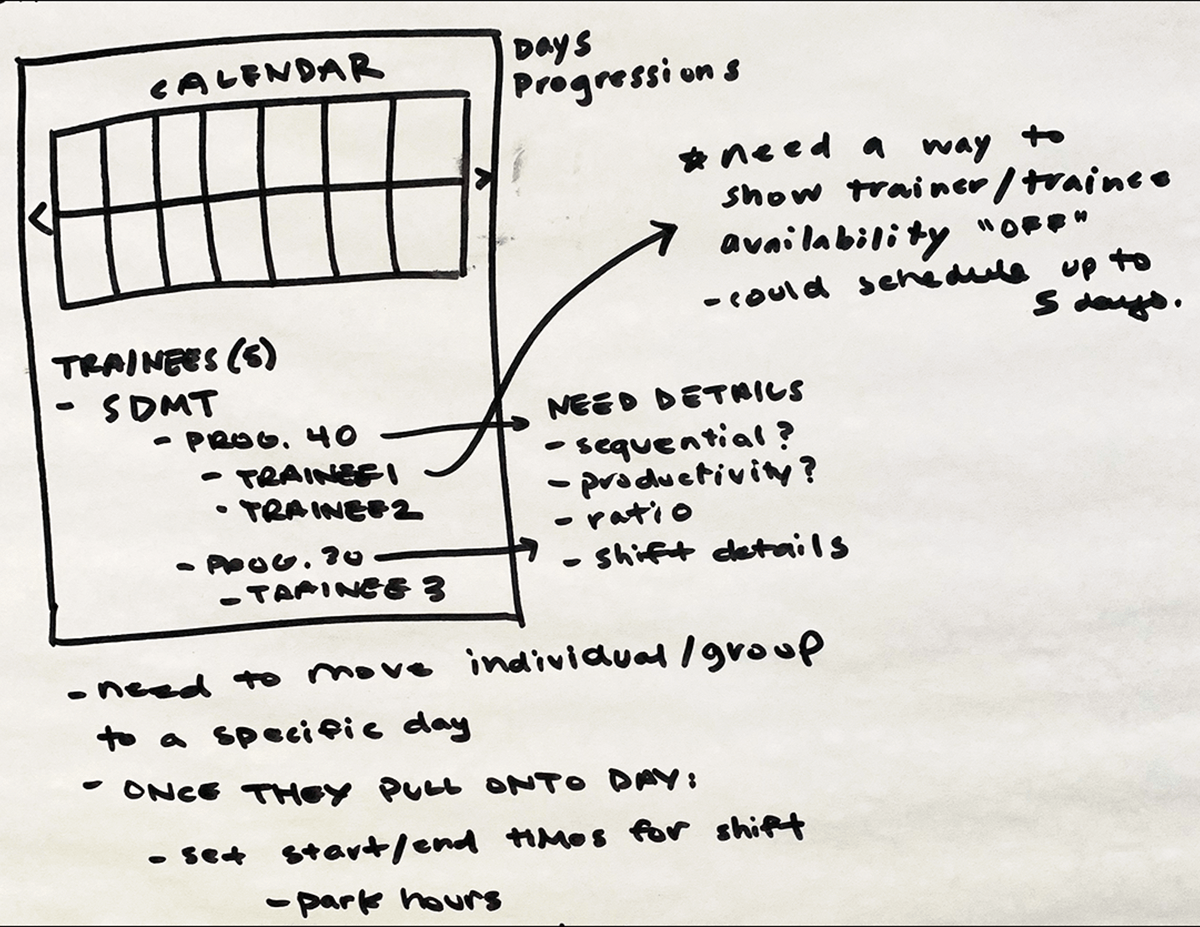 CALENDAR
Days
Progressions
<
>
* need a way to
show trainer/trainee
availability "OFF"
- could schedule up to
5 days.
TRAINEES (5)
- SDMT
- PROG. 40
- TRAINEE1
- TRAINEE2
- PROG. 30
- TRAINEE 3
NEED DETAILS
- sequential?
- productivity?
- ratio
- shift details
- need to move individual/group
to a specific day
- ONCE THEY PULL ONTO DAY:
- set start/end times for shift
- park hours